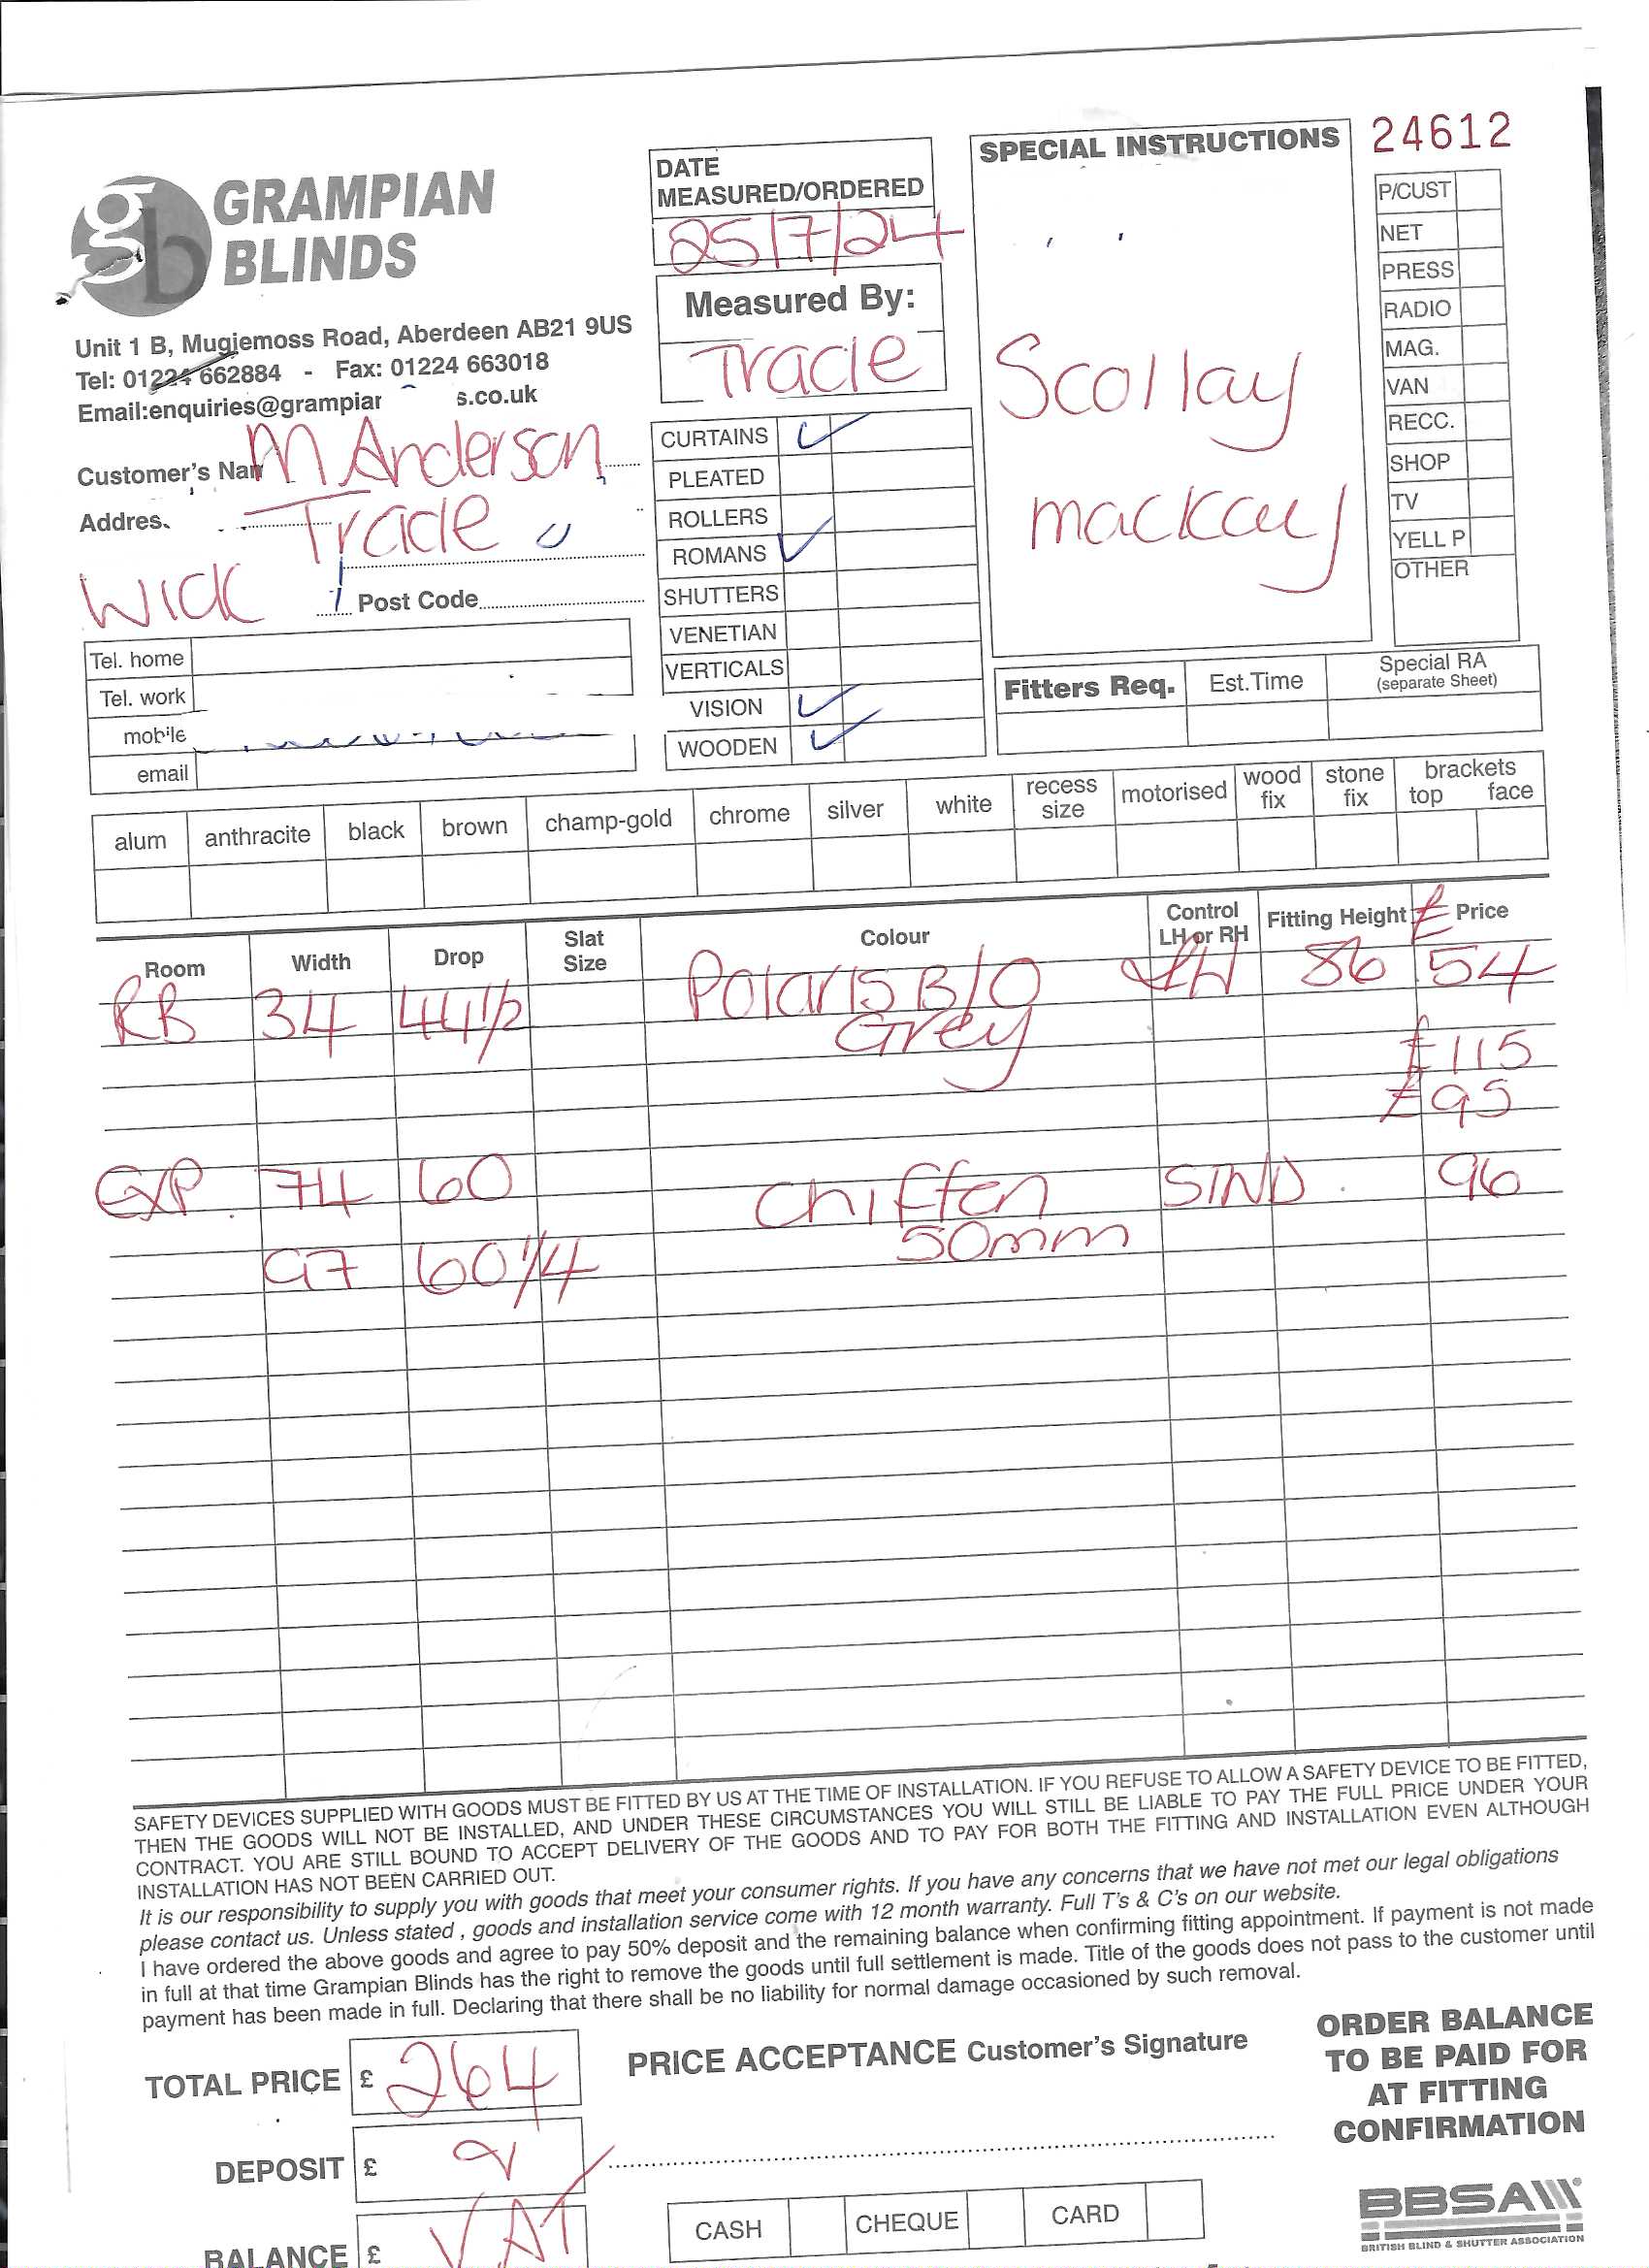 24612
GRAMPIAN
BLINDS
Unit 1 B, Mugiemoss Road, Aberdeen AB21 9US
Tel: 01224 662884 - Fax: 01224 663018
Email:enquiries@grampian s.co.uk
DATE
MEASURED/ORDERED
25/7/24
Measured By:
Tracie
Customer's Nam M Anderson
Addres. Trade
Wick
Post Code
Tel. home
Tel. work
mobile
email
CURTAINS ✓
PLEATED
ROLLERS
ROMANS ✓
SHUTTERS
VENETIAN
VERTICALS
VISION ✓
WOODEN ✓
SPECIAL INSTRUCTIONS
Scollay
mackay
P/CUST
NET
PRESS
RADIO
MAG.
VAN
RECC.
SHOP
TV
YELL P
OTHER
Fitters Req. Est.Time Special RA
(separate Sheet)
alum anthracite black brown champ-gold chrome silver white recess size motorised wood fix stone fix brackets top face
Room Width Drop Slat Size Colour Control LH or RH Fitting Height £ Price
RB 34 44 1/2 Polaris B/O LH 86 54
Grey
£115
£95
EXP 74 60 Chiffen STND. 96
50mm
60 1/4
SAFETY DEVICES SUPPLIED WITH GOODS MUST BE FITTED BY US AT THE TIME OF INSTALLATION. IF YOU REFUSE TO ALLOW A SAFETY DEVICE TO BE FITTED,
THEN THE GOODS WILL NOT BE INSTALLED, AND UNDER THESE CIRCUMSTANCES YOU WILL STILL BE LIABLE TO PAY THE FULL PRICE UNDER YOUR
CONTRACT. YOU ARE STILL BOUND TO ACCEPT DELIVERY OF THE GOODS AND TO PAY FOR BOTH THE FITTING AND INSTALLATION EVEN ALTHOUGH
INSTALLATION HAS NOT BEEN CARRIED OUT.
It is our responsibility to supply you with goods that meet your consumer rights. If you have any concerns that we have not met our legal obligations
please contact us. Unless stated , goods and installation service come with 12 month warranty. Full T's & C's on our website.
I have ordered the above goods and agree to pay 50% deposit and the remaining balance when confirming fitting appointment. If payment is not made
in full at that time Grampian Blinds has the right to remove the goods until full settlement is made. Title of the goods does not pass to the customer until
payment has been made in full. Declaring that there shall be no liability for normal damage occasioned by such removal.
TOTAL PRICE £ 264
DEPOSIT £
BALANCE £ VAT
PRICE ACCEPTANCE Customer's Signature
CASH CHEQUE CARD
ORDER BALANCE
TO BE PAID FOR
AT FITTING
CONFIRMATION
BBSA
BRITISH BLIND & SHUTTER ASSOCIATION